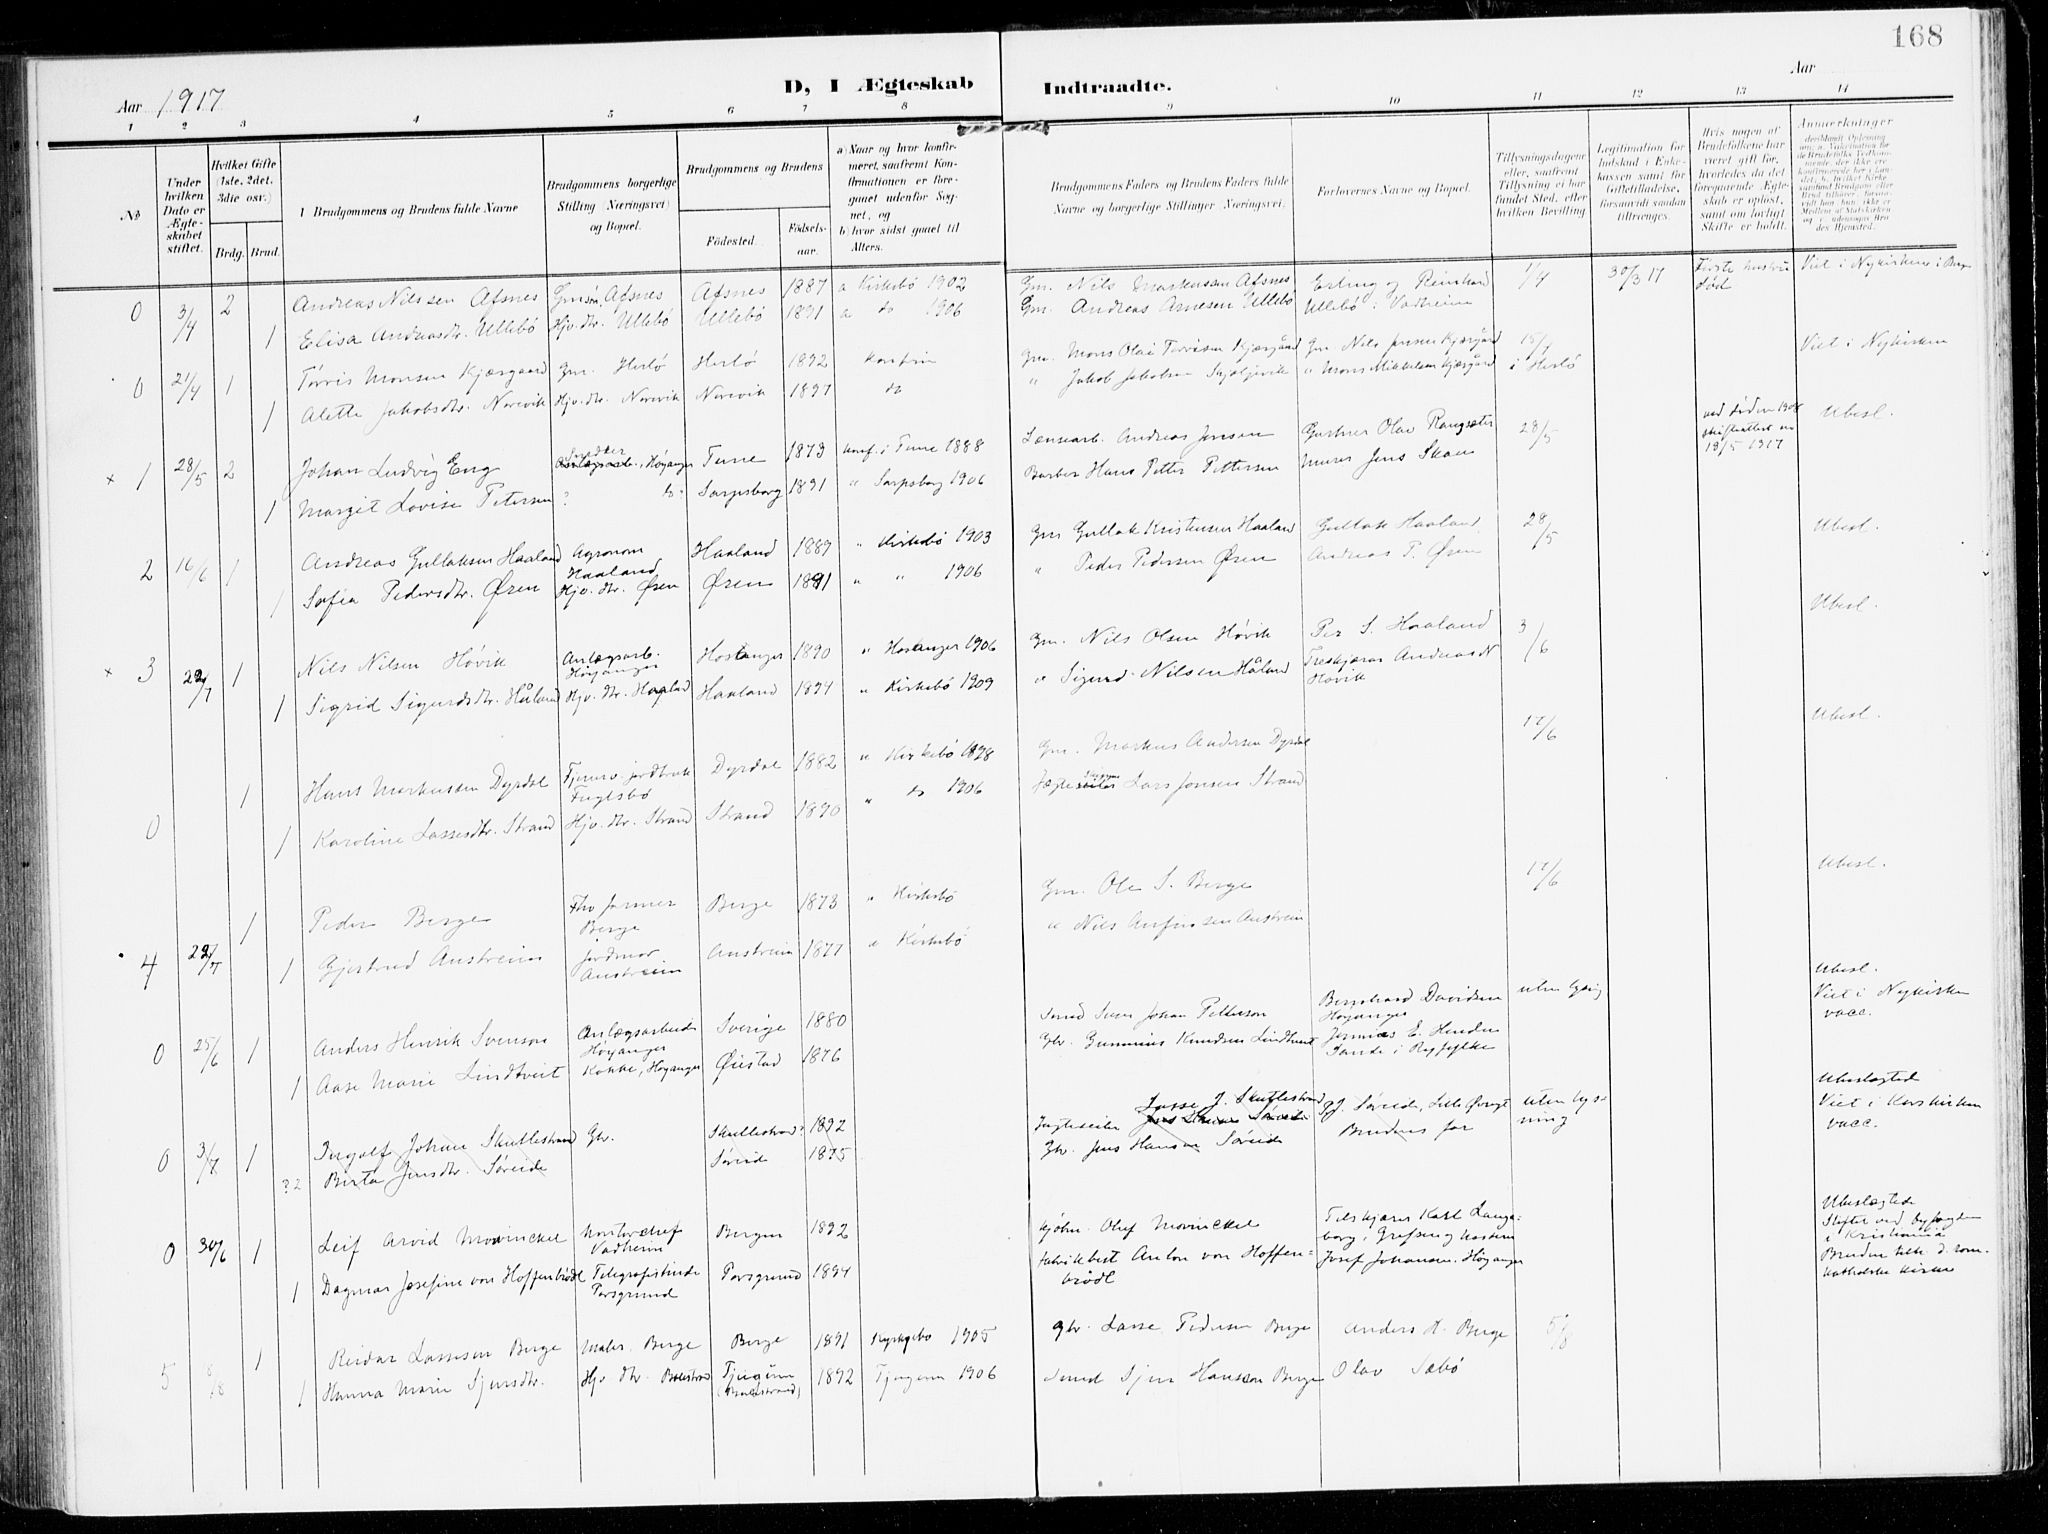 168
D, I Ægteskab Indtraadte.
Aar 1917
Aar
1 2 3 4 5 6 7 8 9 10 11 12 13 14
No
Under hvilken Dato er Ægteskabet stiftet.
Hvilket Gifte (1ste, 2det, 3die osv.)
Brdg. Brud.
1 Brudgommens og Brudens fulde Navne
Brudgommens borgerlige Stilling (Næringsvei) og Bopæl.
Brudgommens og Brudens
Födested. Födselsaar.
a) Naar og hvor konfirmeret, saafremt Konfirmationen er foregaaet udenfor Sognet, og
b) hvor sidst gaaet til Alters.
Brudgommens Faders og Brudens Faders fulde Navne og borgerlige Stillinger (Næringsvei).
Forlovernes Navne og Bopæl.
Tillysningsdagene eller, saafremt Tillysning ei har fundet Sted, efter hvilken Bevilling
Legitimation for Indskud i Enkekassen samt for Giftetilladelse, forsaavidt saadan tiltrænges.
Hvis nogen af Brudefolkene har været gift før, hvorledes da det foregaaende Ægteskab er opløst, samt om lovligt Skifte er holdt.
Anmærkninger
0 3/4 2 Andreas Nilssen Afsnes Gmsøn, Afsnes Afsnes 1887 a Kirkebö 1902 Gm. Nils Markussen Afsnes Erling og Reinhard 1/4 30/3 17 Første hustru død Viet i Nykirken i Bergen
1 Elisa Andreasdtr. Ullebö Hjv. dtr. Ullebö Ullebö 1891 a do 1906 Gm. Andreas Arnesen Ullebö Ullebö i Vadheim
0 21/4 1 Tørris Monsen Kjærgaard Gm. Herlö Herlö 1892 Konfirm Gm. Mons Olai Tørrisen Kjærgård Gm. Nils Jensen Kjærgård 15/ Viet i Nykirken
1 Alette Jakobsdtr. Norevik Hjv. dtr. Norevik Norevik 1897 do " Jakob Jakobsen Skjeljevik " Mons Mikkelsen Kjærgård i Herlö
x 1 28/5 2 Johan Ludvig Eng Snedker Høyanger Tune 1873 Konf. i Tune 1888 Lænsearb. Andreas Jensen Gartner Olav Rangsæter 28/5 ved döden 1908 skifteattest av 19/5 1917 Ubesl.
1 Margit Lovise Petersen ? do Sarpsborg 1891 " Sarpsborg 1906 Barber Hans Petter Pettersen Murer Jens Skau
2 16/6 1 Andreas Gullaksen Haaland Agronom Haaland Haaland 1889 " Kirkebö 1903 Gm Gullak Kristensen Haaland Gullak Haaland 28/5 Ubesl.
1 Sofia Pedersdtr. Øren Hjv. dtr. Øren Øren 1891 " " 1906 " Peder Pedersen Øren Andreas P. Øren
x 3 22/7 1 Nils Nilsen Høvik Anlægsarb. Høyanger Hosanger 1890 " Hosanger 1906 Gm. Nils Olsen Høvik Per S. Haaland 3/6 Ubesl.
1 Sigrid Sigurdsdtr. Håland Hjv. dtr. Haaland Haaland 1894 " Kirkebö 1909 " Sigurd Nilsen Håland Treskjærer Andreas N Høvik
1 Hans Markussen Dyrdal Fjerner. jordbruk Fuglsbö Dyrdal 1882 " Kirkebö 1898 Gm. Markus Andersen Dyrdal 17/6 Ubesl.
0 1 Karoline Lassesdtr. Strand Hjv. dtr. Strand Strand 1890 " do 1906 Jægte Lars Jonsen Strand
1 Peder Berge Fhv farmer Berge Berge 1873 " Kirkebö Gm. Ole S. Berge 17/6 Ubesl.
4 22/7 1 Gjertrud Austreim Jordmor Austreim Austreim 1877 a Kirkebö " Nils Anfinsen Austreim
0 25/6 1 Anders Henrik Svenson Anlægsarbeider Høyanger Sverige 1880 Smed Sven Johan Petterson Bernhard Davidsen Høyanger uten lysning Ubesl. Viet i Nykirken vacc.
1 Aase Marie Lindtveit Kokke, Høyanger Øiestad 1876 Gbr. Gunnius Knudsen Lindtveit E. Hendn Sande i Ryfylke
0 3/7 1 Ingolf Johan Skullestrand Gbr. Skullestrand? 1892 Jægteseiler Lasse J. Skullestrand J. Søreide, uten lysning Ubeslægtede Viet i Korskirken vacc.
?2 Berta Jensdtr. Søreide Søreide 1875 Gbr. Jens Hansen Søreide Brudens far
0 30/6 1 Leif Arvid Mowinckel Kontorchef Vadheim Bergen 1892 Kjøbm. Olaf Mowinckel Karl Langeborg, Grefsen Ubeslægtede Stiftet ved byfogden i Kristiania
1 Dagmar Josefine von Hoffenbrödl Telegrafistinde Porsgrund Porsgrund 1894 Fabrikbest Anton von Hoffenbrödl Josef Johansen. Høyanger Bruden tilh. d. rom. katholske kirke
5 8/8 1 Reidar Lassesen Berge Maler. Berge Berge 1891 Kyrkjebö 1905 gbr. Lasse Pedersen Berge Anders H. Berge 5/8
1 Hanna Marie Sjursdtr. Hjv dtr. Balestrand Tjugum (Balestrand) 1892 Tjugum 1906 Smed Sjur Hansson Berge Olav Sæbö